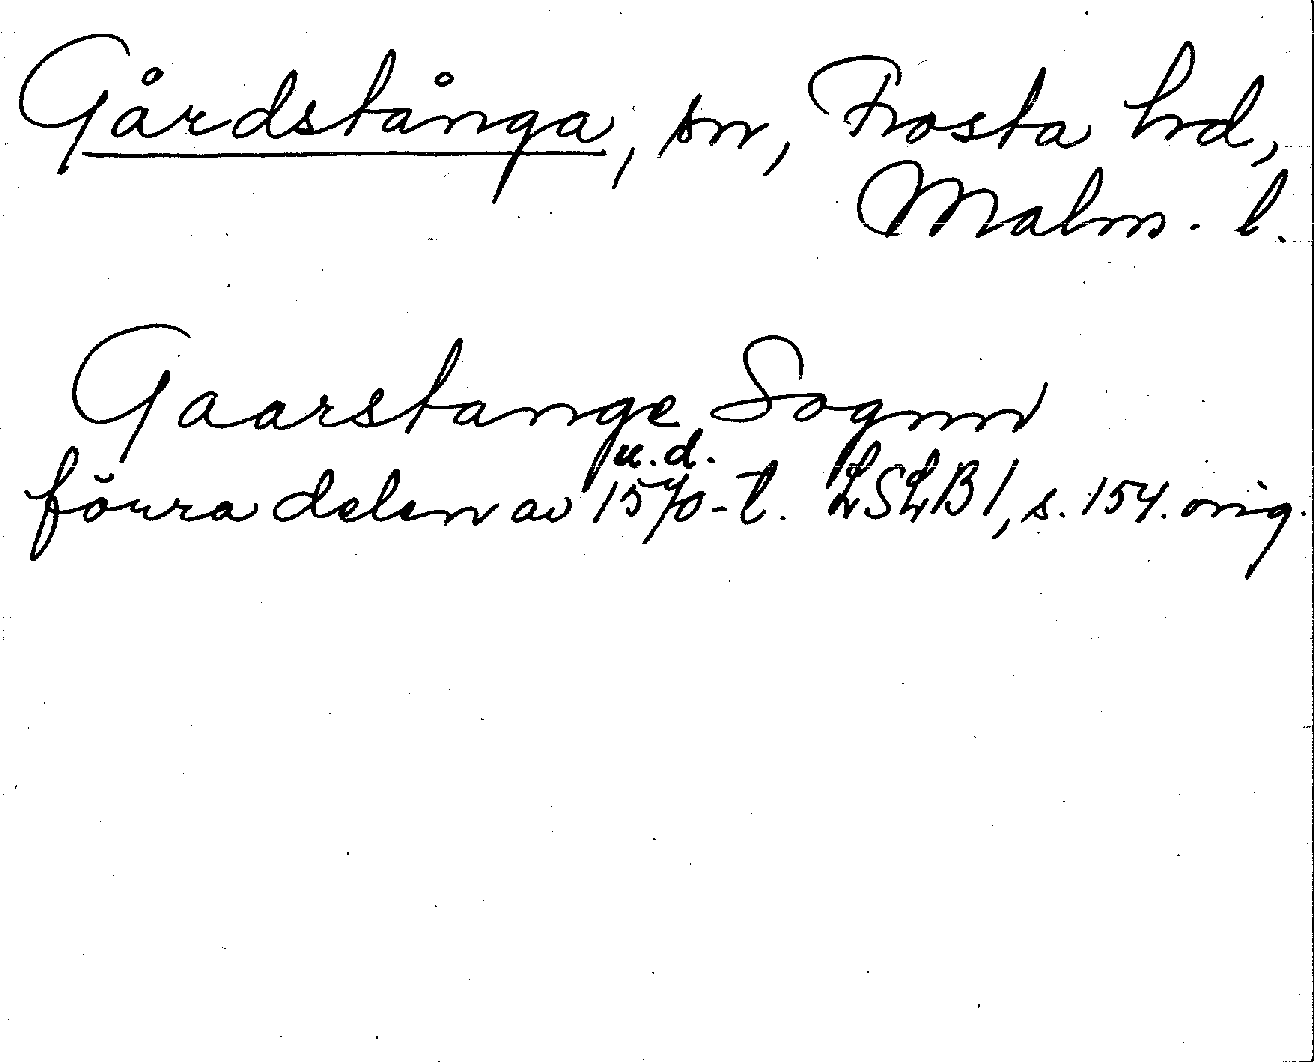 Gårdstånga, sn, Frosta hd,
Malm. l.
Gaarstange Sognn
u.d.
förra delen av 1570-t. LSLB I, s. 154. orig.